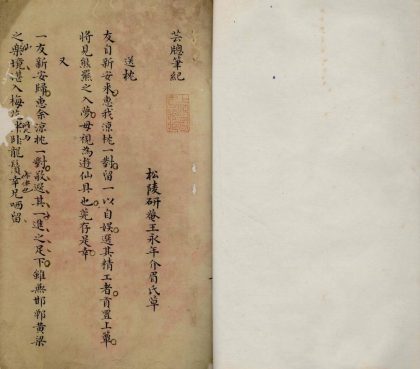 芸牕筆紀
松陵研菴王永年介眉氏草
送枕
友自新安來惠我涼枕一對留一以自娛選其精工者貢置上簟
將見熊羆之入夢毋視為遊仙具也莞存是幸
又
一友新安歸惠余涼枕一對敬選其一進之足下雖無邯鄲黃粱
之樂境堪入梅 臥龍鬚幸兄哂留